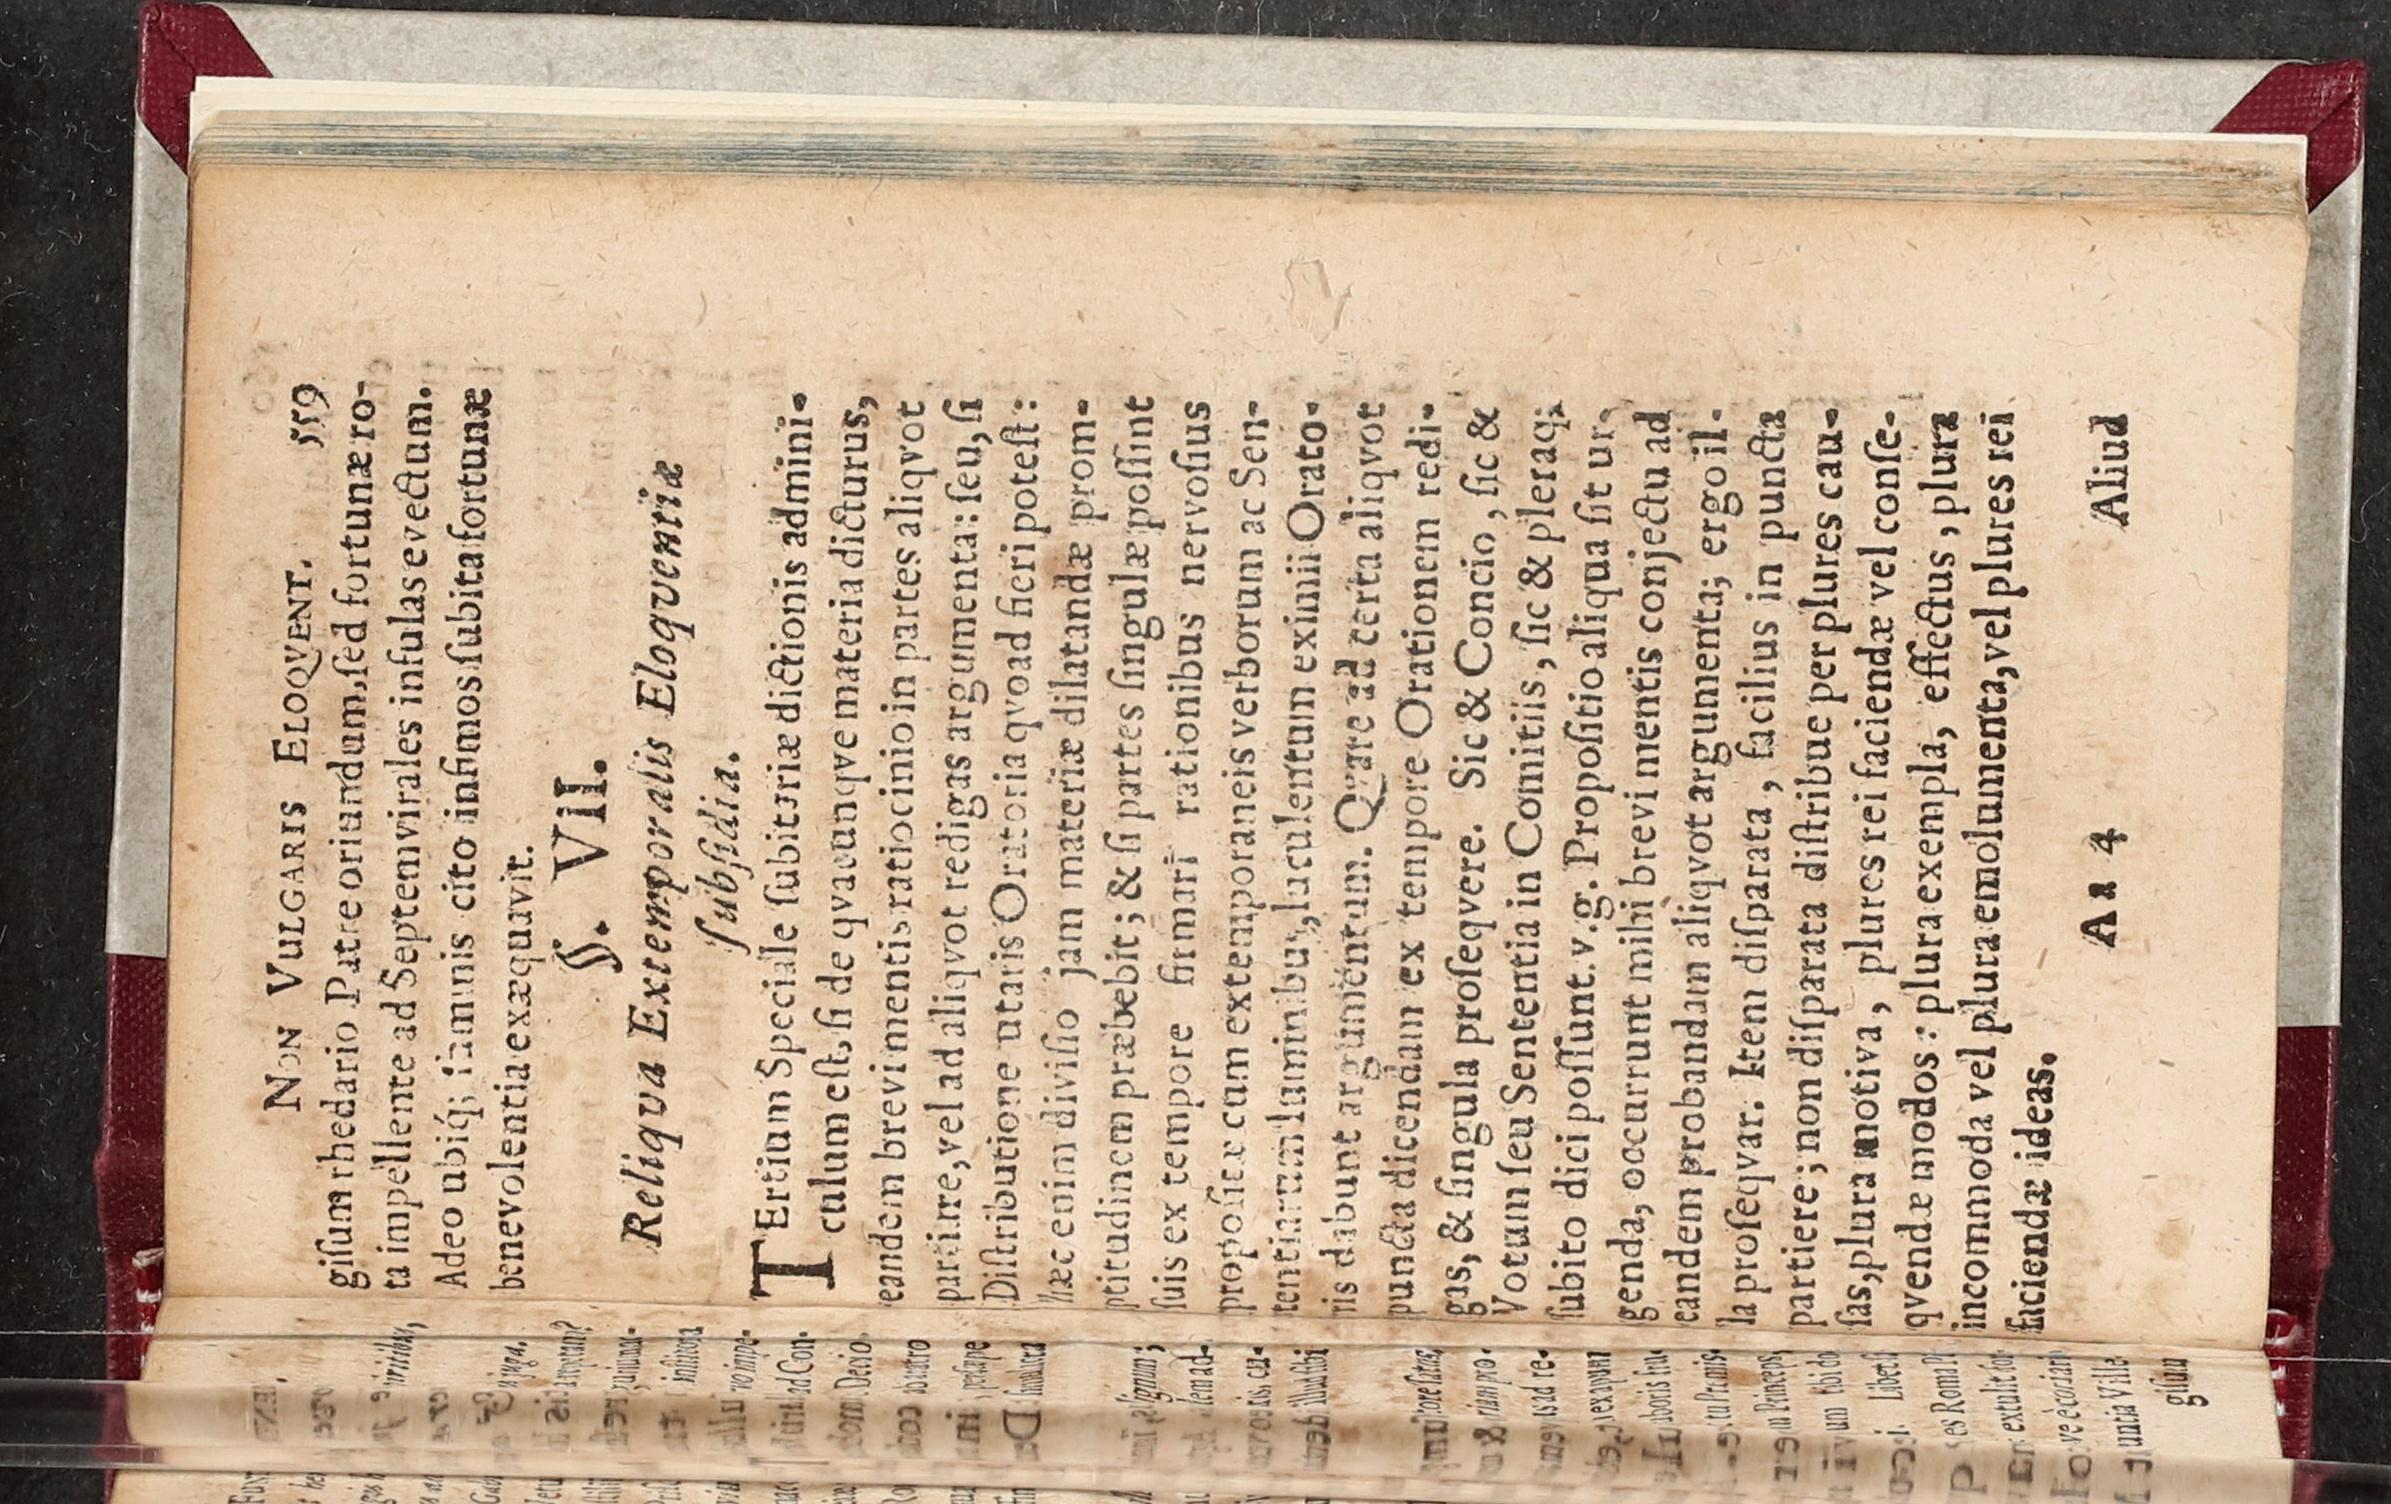 NON VULGARIS ELOQVENT. 559
giſum rhedario Patre oriundum, ſed fortunæ ro-
ta impellente ad Septemvirales infulas evectum.
Adeo ubiq́; immunis cito infimos ſubita fortunæ
benevolentia exæquavit.
§. VII.
Reliqva Extemporalis Eloqventiæ
ſubſidia.
TErtium Speciale ſubitariæ dictionis admini-
culum eſt, ſi de qvacunqve materia dicturus,
eandem brevi mentis ratiocinio in partes aliqvot
partire, vel ad aliqvot redigas argumenta: ſeu, ſi
Diſtributione utaris Oratoria qvoad fieri poteſt:
hæc enim diviſio jam materiæ dilatandæ prom-
ptitudinem præbebit; & ſi partes ſingulæ poſſint
ſuis ex tempore firmari rationibus nervoſius
propoſitæ cum extemporaneis verborum ac Sen-
tentiarum luminibus, luculentum eximii Orato-
ris dabunt argumentum. Qvare ad certa aliqvot
puncta dicendam ex tempore Orationem redi-
gas, & ſingula proſeqvere. Sic & Concio, ſic &
Votum ſeu Sententia in Comitiis, ſic & pleraq;
ſubito dici poſſunt. v.g. Propoſitio aliqua ſit ur-
genda, occurrunt mihi brevi mentis conjectu ad
eandem probandam aliqvot argumenta; ergo il-
la proſeqvar. Item diſparata, facilius in puncta
partiere; non diſparata diſtribue per plures cau-
ſas, plura motiva, plures rei faciendæ vel conſe-
qvendæ modos: plura exempla, effectus, plura
incommoda vel plura emolumenta, vel plures rei
faciendæ ideas.
Aa 4 Aliud
giſum